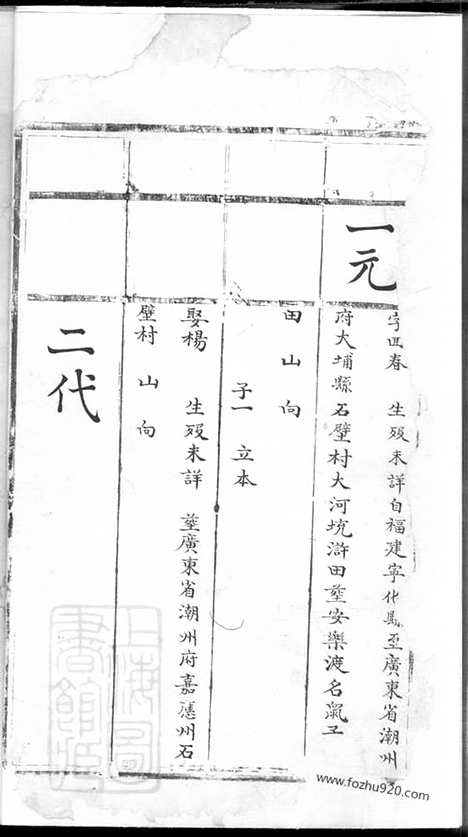 一元
字四春 生歿未詳自福建寧化馬至廣東省潮州
府大埔縣石壁村大河坑滸田塟安樂渡名氣工
田山向
子一 立本
娶楊 生歿未詳 塟廣東省潮州府嘉應州石
壁村 山向
二代
上海圖書館藏
www.fozhu920.com